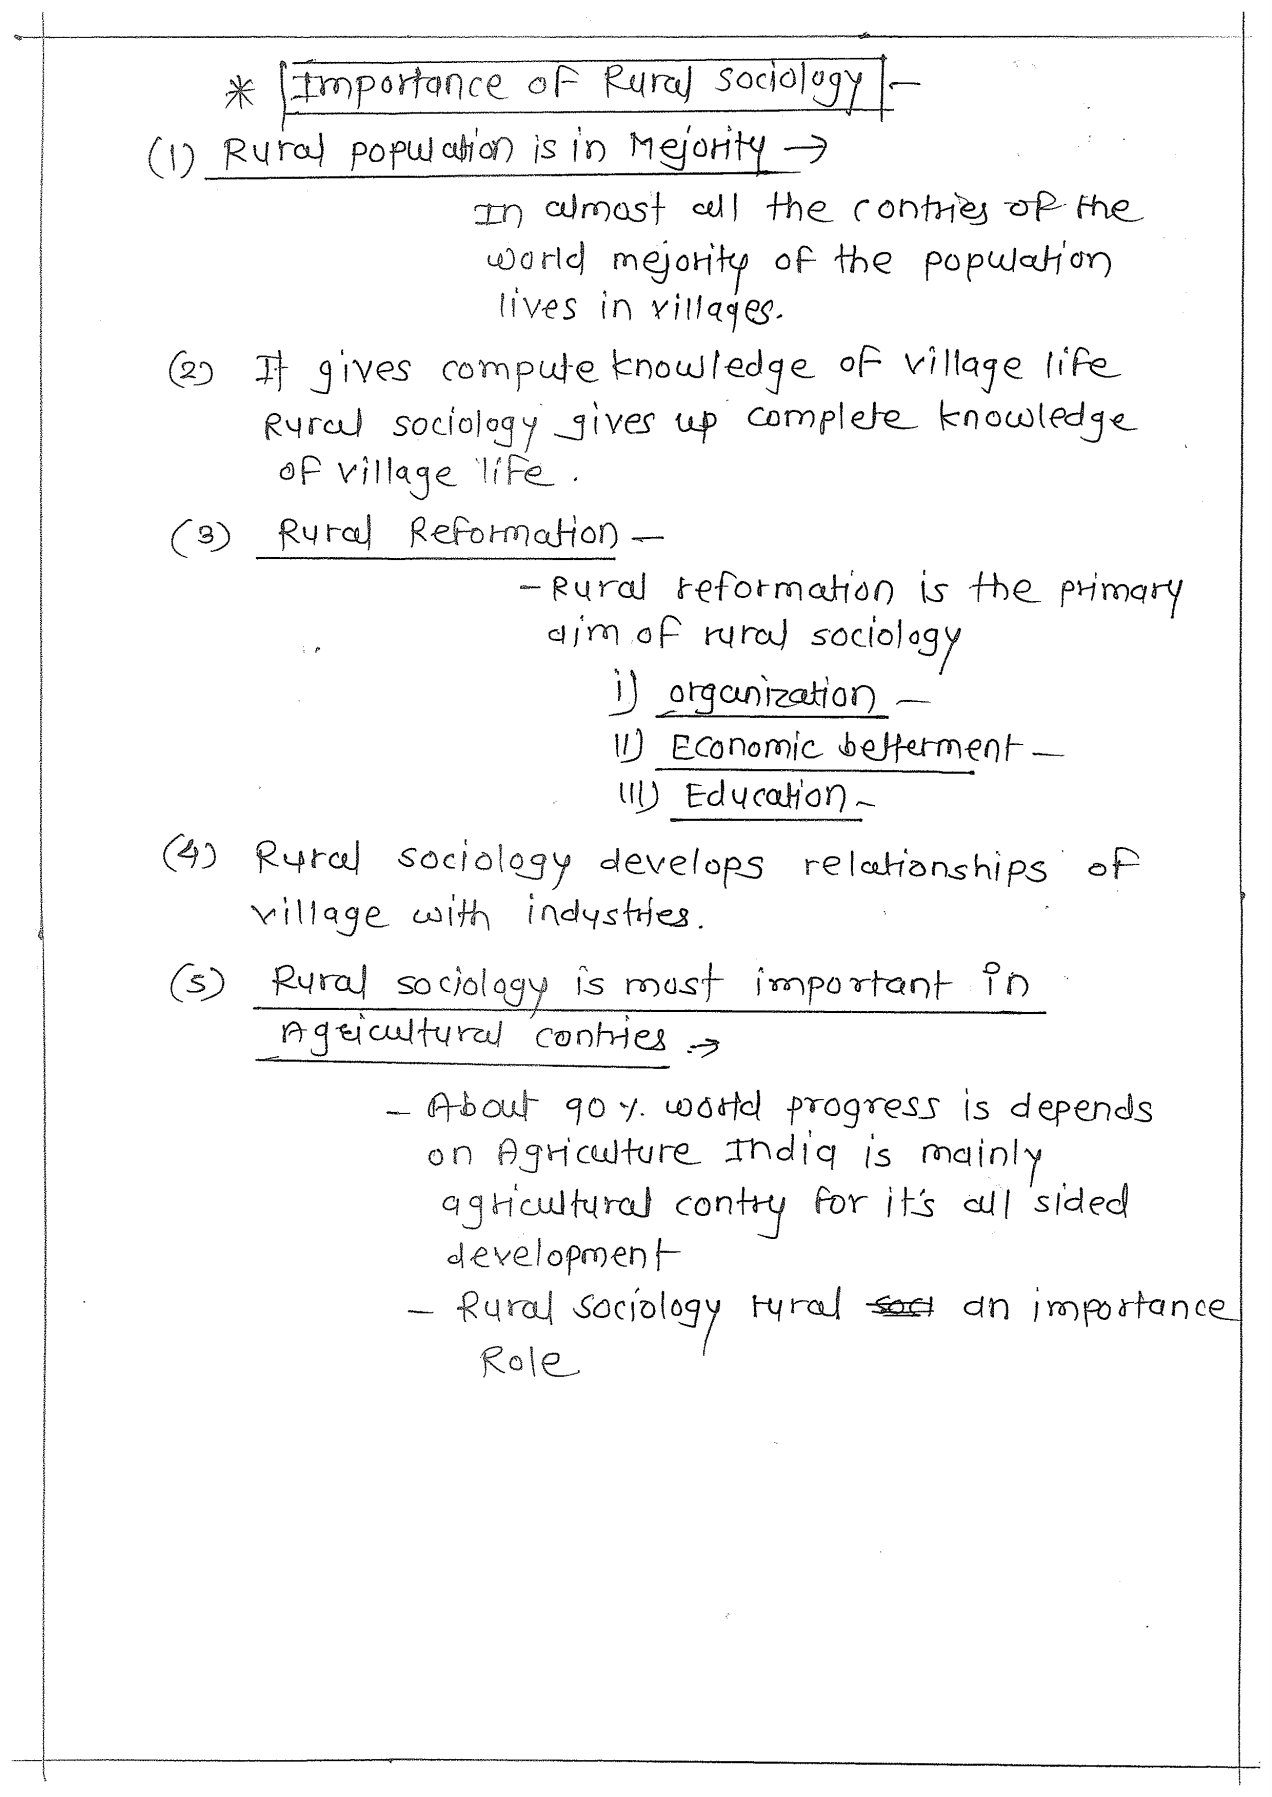 * Importance of Rural Sociology -
(1) Rural population is in Mejority →
In almost all the contries of the
world mejority of the population
lives in villages.
(2) It gives compute knowledge of village life
Rural sociology gives up complete knowledge
of village life.
(3) Rural Reformation -
- Rural reformation is the primary
aim of rural sociology
i) organization -
II) Economic betterment -
III) Education -
(4) Rural sociology develops relationships of
village with industries.
(5) Rural sociology is most important in
Agricultural contries →
- About 90 %. world progress is depends
on Agriculture India is mainly
agricultural contry for it's all sided
development
- Rural sociology rural soci an importance
Role